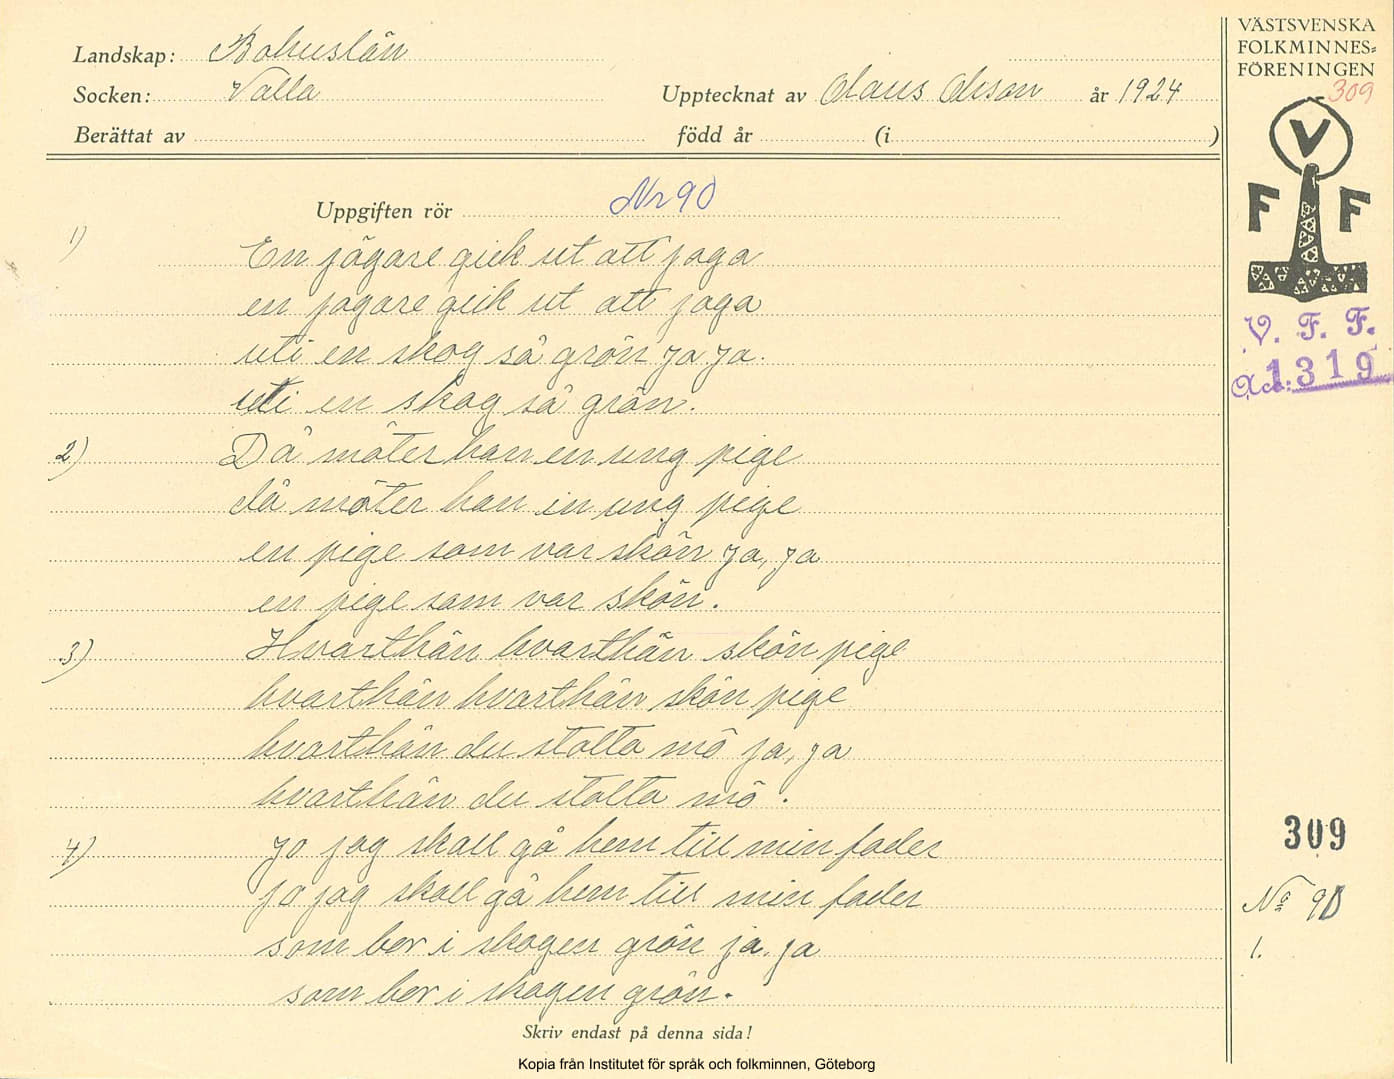 Landskap: Bohuslän
Socken: Valla
Upptecknat av Olaus Olsson år 1924
Berättat av
född år (i )
VÄSTSVENSKA
FOLKMINNES=
FÖRENINGEN
309
V
F F
V. F. F.
Acc: 1319
Uppgiften rör Nr 90
1) En jägare gick ut att jaga
en jagare geik ut att jaga
uti en skog så grön ja ja.
uti en skog så grön.
2) Då möter han en ung pige
då möter han en ung pige
en pige som var skön ja, ja
en pige som var skön.
3) Hvarthän hvarthän skön pige
hvarthän hvarthän skön pige
hvarthän du stolta mö ja, ja
hvarthän du stolta mö.
4) Jo jag skall gå hem till min fader
jo jag skall gå hem till min fader
som bor i skogen grön ja. ja
som bor i skogen grön.
309
No 90
1.
Skriv endast på denna sida!
Kopia från Institutet för språk och folkminnen, Göteborg